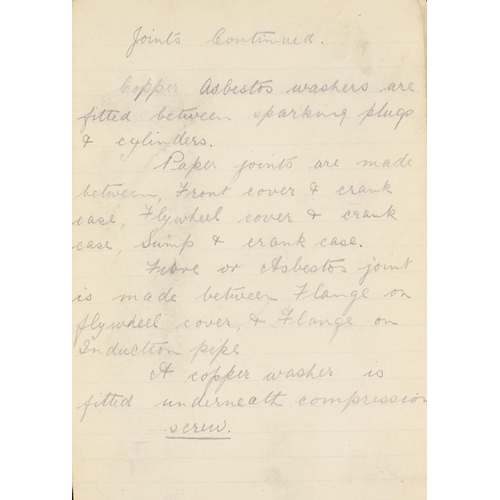 Joints Continued.
Copper Asbestos washers are
fitted between sparking plugs
& cylinders.
Paper joints are made
between, Front cover & crank
case, Flywheel cover & crank
case, Sump & crank case.
Fibre or Asbestos joint
is made between Flange on
flywheel cover, & Flange on
Induction pipe
A copper washer is
fitted underneath compression
screw.